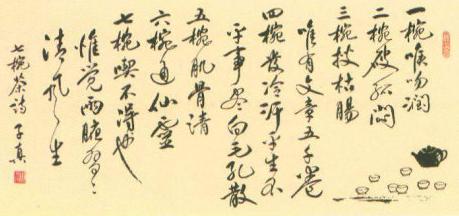 一椀喉吻潤
二椀破孤悶
三椀搜枯腸
唯有文章五千卷
四椀發輕汗平生不
平事盡向毛孔散
五椀肌骨清
六椀通仙靈
七椀喫不得也
惟覺兩腋習々
清風生
七椀茶詩 子真